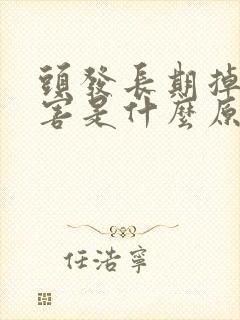 頭發長期掉
害是什麼原
任浩寧